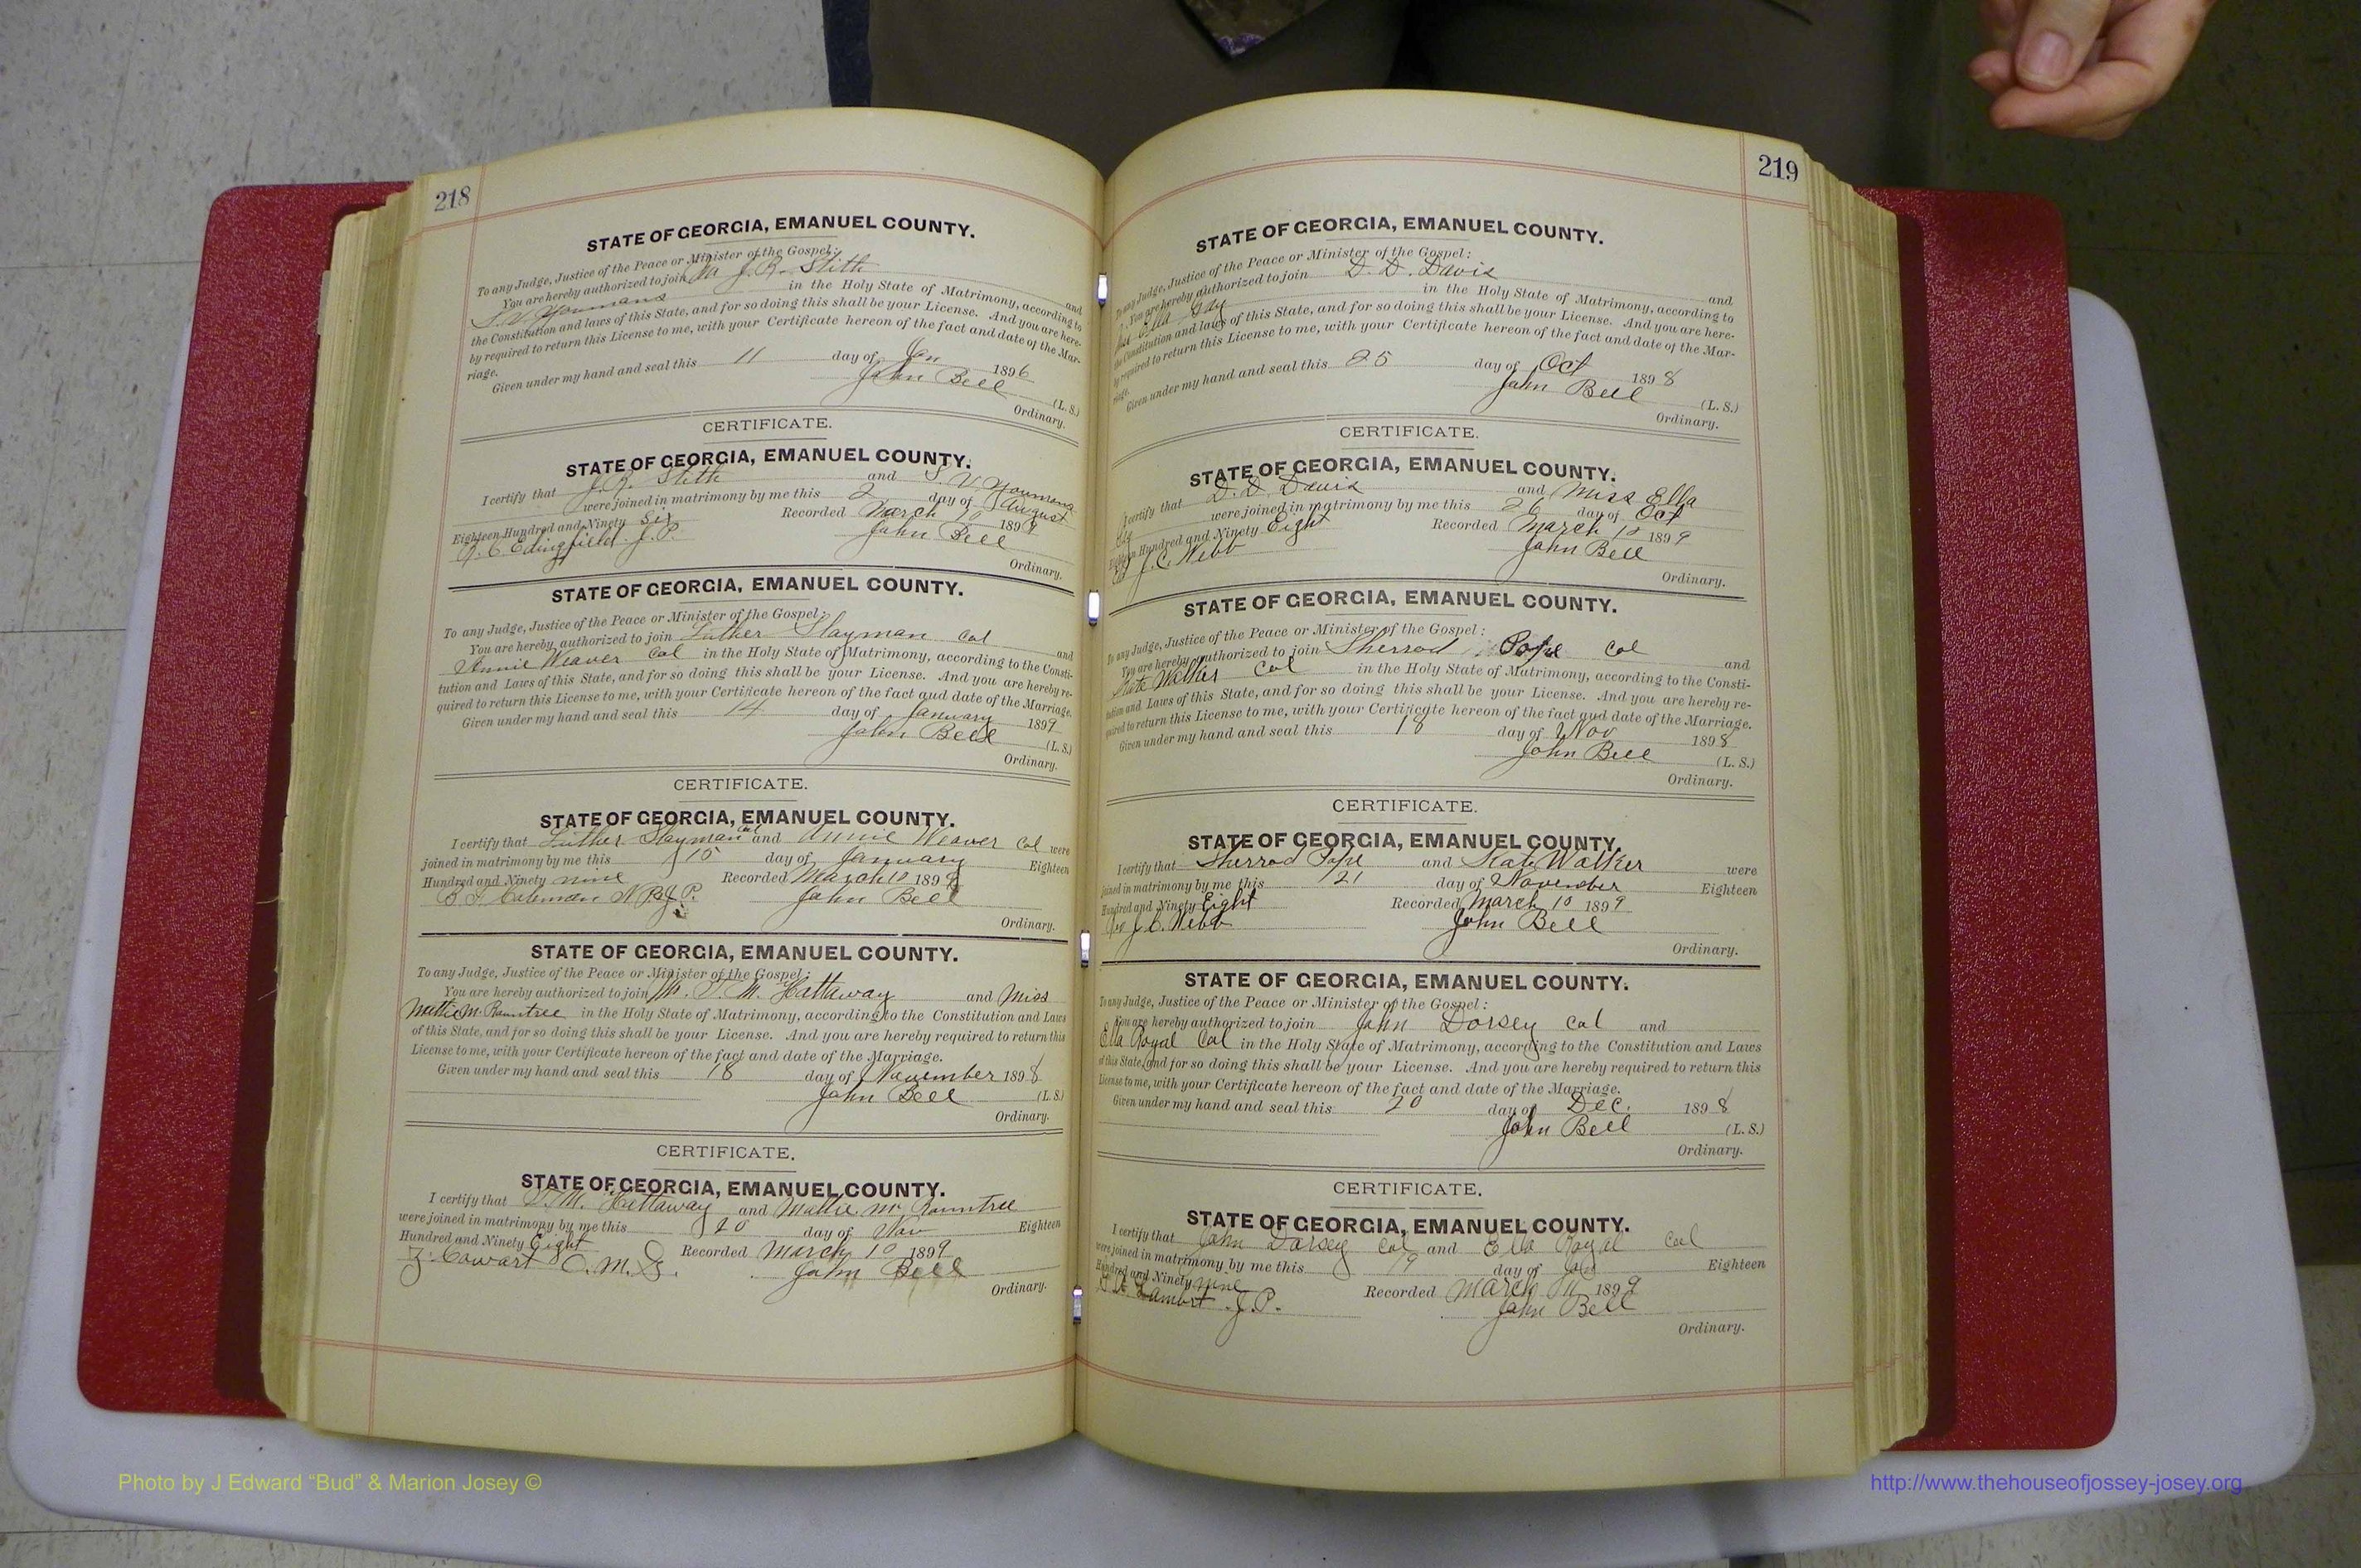 218
STATE OF GEORGIA, EMANUEL COUNTY.
To any Judge, Justice of the Peace or Minister of the Gospel:
You are hereby authorized to join Mr J. R. Stith and
S. V. Youmans in the Holy State of Matrimony, according to
the Constitution and laws of this State, and for so doing this shall be your License. And you are here-
by required to return this License to me, with your Certificate hereon of the fact and date of the Mar-
riage.
Given under my hand and seal this 11 day of Jan 1896
John Bell (L. S.)
Ordinary.
CERTIFICATE.
STATE OF GEORGIA, EMANUEL COUNTY.
I certify that J. R. Stith and S. V. Youmans
were joined in matrimony by me this 2 day of August
Eighteen Hundred and Ninety Six Recorded March 10 1899
Edingfield J. P. John Bell
Ordinary.
STATE OF GEORGIA, EMANUEL COUNTY.
To any Judge, Justice of the Peace or Minister of the Gospel:
You are hereby authorized to join Luther Slayman Col and
Annie Weaver Col in the Holy State of Matrimony, according to the Consti-
tution and Laws of this State, and for so doing this shall be your License. And you are hereby re-
quired to return this License to me, with your Certificate hereon of the fact and date of the Marriage.
Given under my hand and seal this 14 day of January 1899
John Bell (L. S.)
Ordinary.
CERTIFICATE.
STATE OF GEORGIA, EMANUEL COUNTY.
I certify that Luther Slayman Col and Annie Weaver Col were
joined in matrimony by me this 15 day of January Eighteen
Hundred and Ninety nine Recorded March 10 1899
N. P. & J. P. John Bell
Ordinary.
STATE OF GEORGIA, EMANUEL COUNTY.
To any Judge, Justice of the Peace or Minister of the Gospel:
You are hereby authorized to join Mr. T. M. Hattaway and Miss
Mattie M. Rountree in the Holy State of Matrimony, according to the Constitution and Laws
of this State, and for so doing this shall be your License. And you are hereby required to return this
License to me, with your Certificate hereon of the fact and date of the Marriage.
Given under my hand and seal this 18 day of November 1898
John Bell (L. S.)
Ordinary.
CERTIFICATE.
STATE OF GEORGIA, EMANUEL COUNTY.
I certify that T. M. Hattaway and Mattie M. Rountree
were joined in matrimony by me this 20 day of Nov Eighteen
Hundred and Ninety Eight Recorded March 10 1899
Cowart O. M. G. John Bell
Ordinary.
219
STATE OF GEORGIA, EMANUEL COUNTY.
To any Judge, Justice of the Peace or Minister of the Gospel:
You are hereby authorized to join D. D. Davis and
Miss Ella Gay in the Holy State of Matrimony, according to
the Constitution and laws of this State, and for so doing this shall be your License. And you are here-
by required to return this License to me, with your Certificate hereon of the fact and date of the Mar-
riage.
Given under my hand and seal this 25 day of Oct 1898
John Bell (L. S.)
Ordinary.
CERTIFICATE.
STATE OF GEORGIA, EMANUEL COUNTY.
I certify that D. D. Davis and Miss Ella
Gay were joined in matrimony by me this 26 day of Oct
Eighteen Hundred and Ninety Eight Recorded March 10 1899
J. C. Webb John Bell
Ordinary.
STATE OF GEORGIA, EMANUEL COUNTY.
To any Judge, Justice of the Peace or Minister of the Gospel:
You are hereby authorized to join Sherrod Pope Col and
Kate Walker Col in the Holy State of Matrimony, according to the Consti-
tution and Laws of this State, and for so doing this shall be your License. And you are hereby re-
quired to return this License to me, with your Certificate hereon of the fact and date of the Marriage.
Given under my hand and seal this 18 day of Nov 1898
John Bell (L. S.)
Ordinary.
CERTIFICATE.
STATE OF GEORGIA, EMANUEL COUNTY.
I certify that Sherrod Pope and Kate Walker were
joined in matrimony by me this 21 day of November Eighteen
Hundred and Ninety Eight Recorded March 10 1899
J. C. Webb John Bell
Ordinary.
STATE OF GEORGIA, EMANUEL COUNTY.
To any Judge, Justice of the Peace or Minister of the Gospel:
You are hereby authorized to join John Dorsey Col and
Ella Royal Col in the Holy State of Matrimony, according to the Constitution and Laws
of this State, and for so doing this shall be your License. And you are hereby required to return this
License to me, with your Certificate hereon of the fact and date of the Marriage.
Given under my hand and seal this 20 day of Dec. 1898
John Bell (L. S.)
Ordinary.
CERTIFICATE.
STATE OF GEORGIA, EMANUEL COUNTY.
I certify that John Dorsey Col and Ella Royal Col
were joined in matrimony by me this 19 day of Eighteen
Hundred and Ninety nine Recorded March 10 1899
Lambert J. P. John Bell
Ordinary.
Photo by J Edward “Bud” & Marion Josey ©
http://www.thehouseofjossey-josey.org